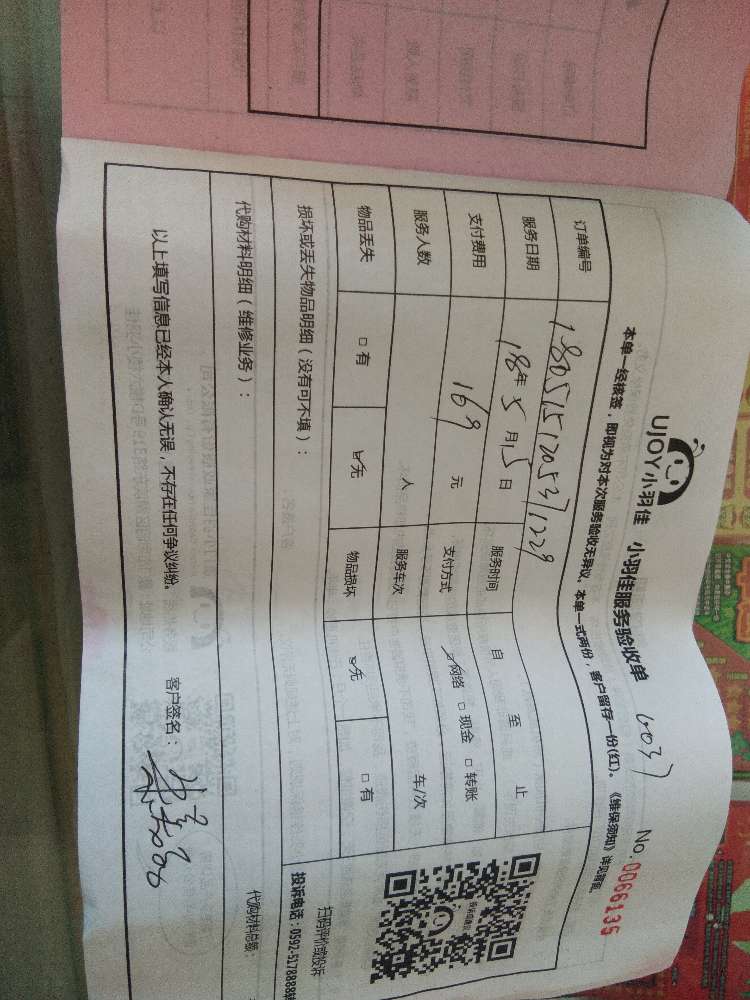 UJOY小羽佳 小羽佳服务验收单 No.0066135
本单一经核签，即视为对本次服务验收无异议。本单一式两份，客户留存一份(红)。《维保须知》详见背面。
订单编号 1805151205371229
服务日期 18年5月15日 服务时间 自 至 止
支付费用 169 元 支付方式 网络 □现金 □转账
服务人数 人 服务车次 车/次
物品丢失 □有 无 物品损坏 无 □有
损坏或丢失物品明细（没有可不填）：
扫码评价或投诉
投诉电话：0592-5178888转
代购材料明细（维修业务）： 代购材料总额：
以上填写信息已经本人确认无误，不存在任何争议纠纷。 客户签名：